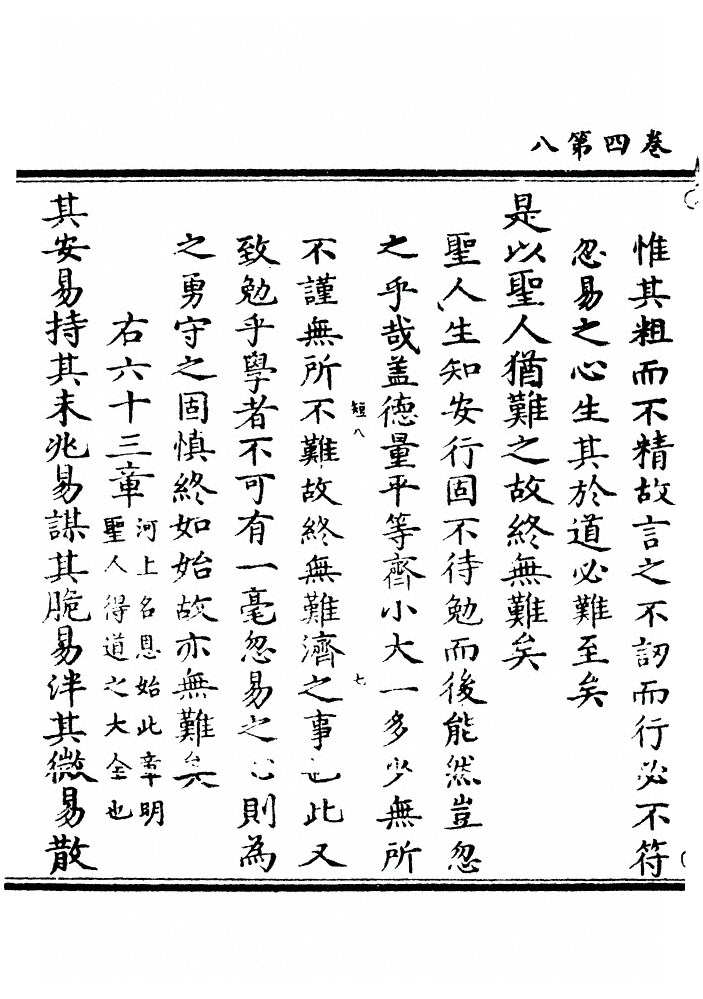 卷四第八
惟其粗而不精故言之不訒而行必不符
忽易之心生其於道必難至矣
是以聖人猶難之故終無難矣
聖人生知安行固不待勉而後能然豈忽
之乎哉盖德量平等齊小大一多少無所
不謹無所不難故終無難濟之事也此又
短八
七
致勉乎學者不可有一毫忽易之心則為
之勇守之固慎終如始故亦無難矣
右六十三章
河上名恩始此章明
聖人得道之大全也
其安易持其未兆易謀其脆易泮其微易散